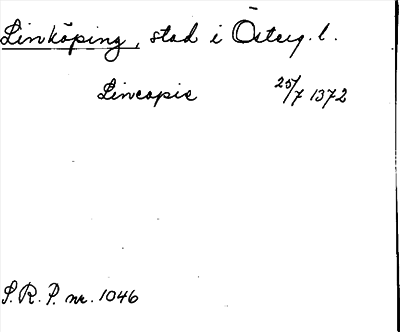 Linköping, stad i Österg. l.
Lincopie 25/7 1372
S.R.P. nr. 1046